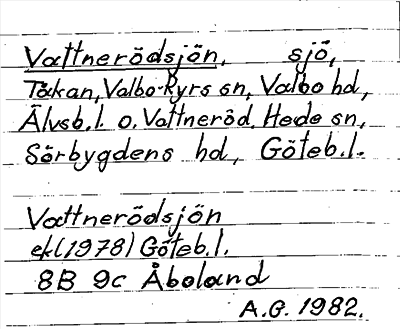 Vattnerödsjön, sjö,
Tåkan, Valbo-Ryrs sn, Valbo hd,
Älvsb.l. o. Vattneröd, Hede sn,
Sörbygdens hd, Göteb.l.
Vattnerödsjön
ekl(1978) Göteb.l.
8B 9c Åboland
A.G. 1982.